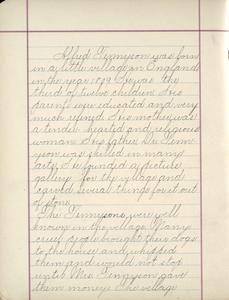 Alfred Tennyson was born
in a little village in England
in the year 1809. He was the
third of twelve children. His
parents were educated and very
much refined. His mother was
a tender hearted and religious
woman. His father, Mr. Tenn-
yson was skilled in many
arts, he founded a picture
gallery for the village and
carved several things for it out
of stone.
The Tennysons were well
known in the village. Many
cruel people brought their dogs
to the house and whipped
them and would not stop
until Mrs. Tennyson gave
them money. The village